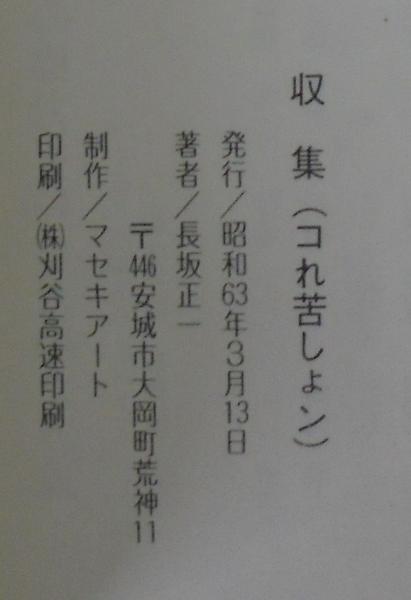 収集（コれ苦しょン）
発行／昭和63年3月13日
著者／長坂正一
〒446安城市大岡町荒神11
制作／マセキアート
印刷／㈱刈谷高速印刷